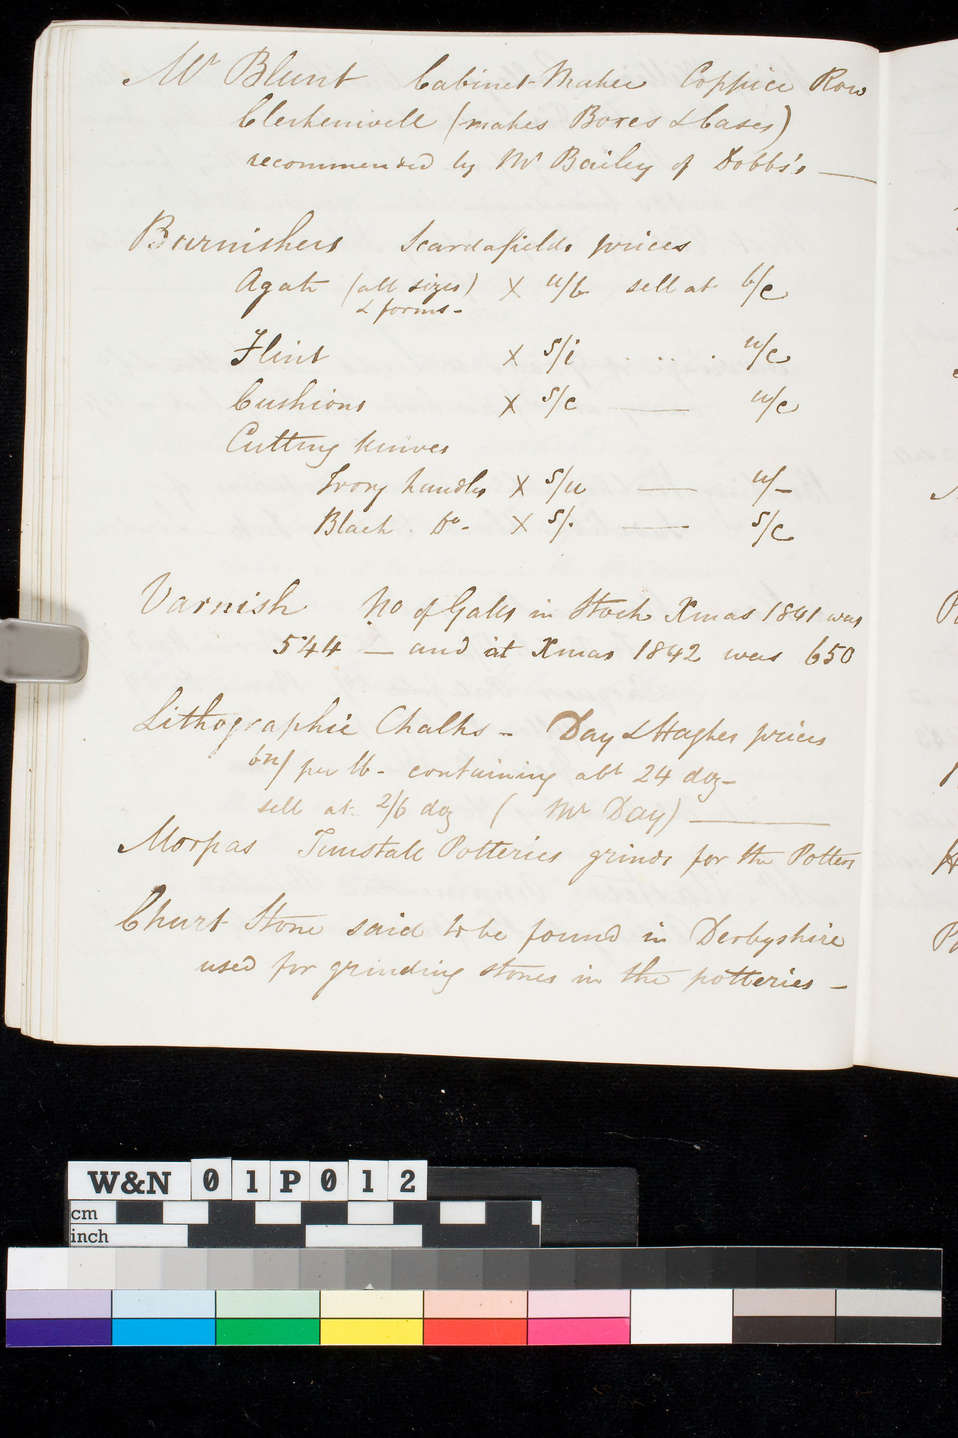 Mr Blunt Cabinet-Maker Coppice Row
Clerkenwell (makes Boxes & Cases)
recommended by Mr Bailey of Dobbs's —
Burnishers Scardafields prices
Agate (all sizes) X u/b sell at b/c
& forms -
Flint X s/i . . . . u/c
Cushions X s/c — u/c
Cutting Knives
Ivory handles X s/u — u/-
Black Do - X s/. — s/c
Varnish No of Galls in Stock Xmas 1841 was
544 — and at Xmas 1842 was 650
Lithographic Chalks - Day & Haghes prices
per lb - containing abt 24 doz -
sell at 2/6 doz ( Mr Day) —
Morpas Tunstall Potteries grinds for the Potters
Churt Stone said to be found in Derbyshire
used for grinding stones in the potteries -
W&N 01P012
cm
inch